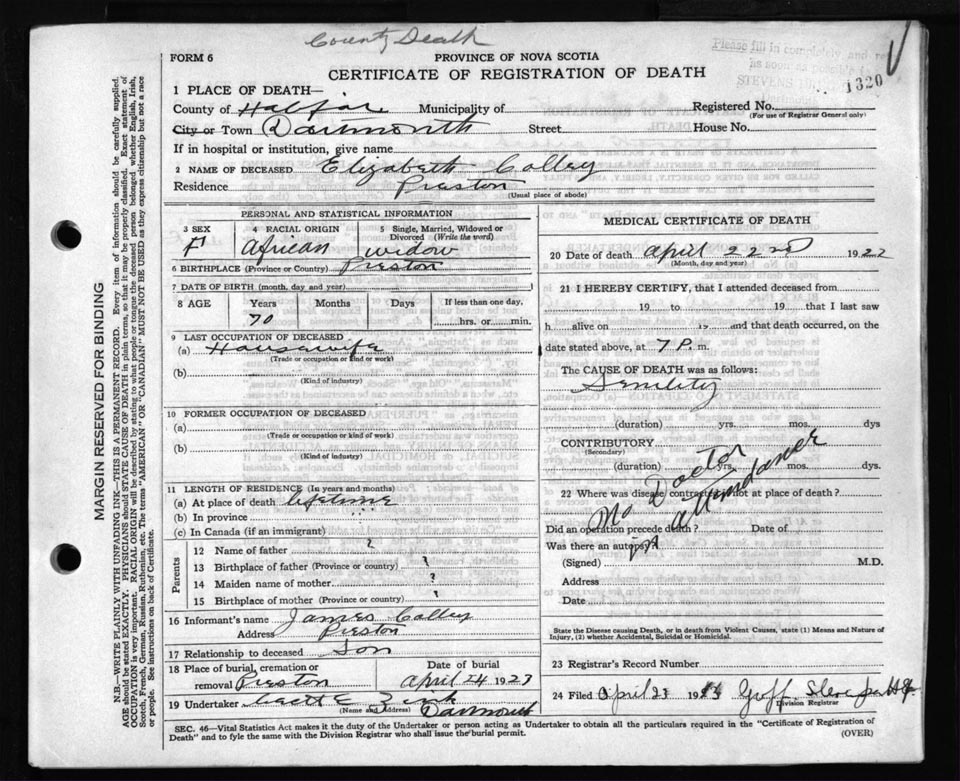 County Death
FORM 6
PROVINCE OF NOVA SCOTIA
CERTIFICATE OF REGISTRATION OF DEATH
Please fill in completely and
as soon as possible
STEVENS
1320
1 PLACE OF DEATH—
County of Halifax Municipality of
Registered No.
(For use of Registrar General only)
City or Town Dartmouth Street House No.
If in hospital or institution, give name
2 NAME OF DECEASED Elizabeth Colley
Residence Preston
(Usual place of abode)
PERSONAL AND STATISTICAL INFORMATION
3 SEX 4 RACIAL ORIGIN 5 Single, Married, Widowed or Divorced (Write the word)
F African widow
6 BIRTHPLACE (Province or Country) Preston
7 DATE OF BIRTH (month, day, and year)
8 AGE Years Months Days If less than one day,
70 hrs. or min.
9 LAST OCCUPATION OF DECEASED
(a) Housewife
(Trade or occupation or kind or work)
(b)
(Kind of industry)
10 FORMER OCCUPATION OF DECEASED
(a)
(Trade or occupation or kind of work)
(b)
(Kind of industry)
11 LENGTH OF RESIDENCE (In years and months)
(a) At place of death lifetime
(b) In province
(c) In Canada (if an immigrant)
Parents
12 Name of father ?
13 Birthplace of father (Province or country) ?
14 Maiden name of mother ?
15 Birthplace of mother (Province or Country) ?
16 Informant's name James Colley
Address Preston
17 Relationship to deceased Son
18 Place of burial, cremation or removal Preston
Date of burial April 24 1927
19 Undertaker
(Name and Address) Dartmouth
MEDICAL CERTIFICATE OF DEATH
20 Date of death April 22nd 1927
(Month, day and year)
21 I HEREBY CERTIFY, that I attended deceased from
19 to 19 that I last saw
h alive on 19 and that death occurred, on the
date stated above, at 7 P. m.
The CAUSE OF DEATH was as follows:
Senility
(duration) yrs. mos. dys
CONTRIBUTORY
(Secondary)
(duration) yrs. mos. dys.
22 Where was disease contracted if not at place of death?
No Doctor in attendance
Did an operation precede death? Date of
Was there an autopsy?
(Signed) M.D.
Address
Date
State the Disease causing Death, or in death from Violent Causes, state (1) Means and Nature of
Injury, (2) whether Accidental, Suicidal or Homicidal.
23 Registrar's Record Number
24 Filed April 23 19
Division Registrar
SEC. 46—Vital Statistics Act makes it the duty of the Undertaker or person acting as Undertaker to obtain all the particulars required in the "Certificate of Registration of
Death" and to fyle the same with the Division Registrar who shall issue the burial permit. (OVER)
MARGIN RESERVED FOR BINDING
N.B.—WRITE PLAINLY WITH UNFADING INK—THIS IS A PERMANENT RECORD. Every item of information should be carefully supplied.
AGE should be stated EXACTLY. PHYSICIANS should STATE CAUSE OF DEATH in plain terms, so that it may be properly classified. Exact statement of
OCCUPATION is very important. RACIAL ORIGIN will be described by stating to what people or tongue the deceased person belonged whether English, Irish,
Scotch, French, German, Russian, Ruthenian, etc. The terms "AMERICAN" or "CANADIAN" MUST NOT BE USED as they express citizenship but not a race
or people. See instructions on back of Certificate.